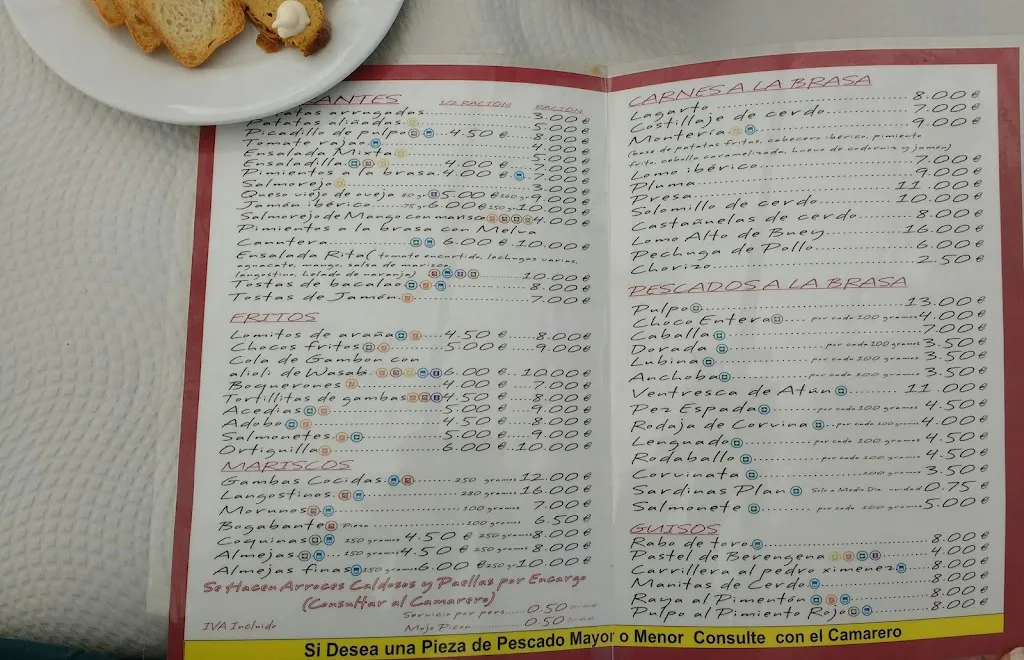 ANTES 1/2 RACIÓN RACIÓN
Patatas arrugadas 3.00€
Patatas aliñadas 5.00€
Picadillo de pulpo 4.50€ 8.00€
Tomate rajao 4.00€
Ensalada Mixta 5.00€
Ensaladilla 4.00€ 7.00€
Pimientos a la brasa 4.00€ 7.00€
Salmorejo 3.00€
Queso viejo de oveja 5.00€ 9.00€
Jamón ibérico 75gr 6.00€ 150gr 10.00€
Salmorejo de Mango con marisco 4.00€
Pimientos a la brasa con Melva
Canutera 6.00€ 10.00€
Ensalada Rita( tomate encurtido, lechugas varias,
aguacate, mango, salsa de marisco,
langostino, helado de naranja) 10.00€
Tostas de bacalao 8.00€
Tostas de Jamón 7.00€
FRITOS
Lomitos de araña 4.50€ 8.00€
Chocos fritos 5.00€ 9.00€
Cola de Gambon con
alioli de Wasab 6.00€ 10.00€
Boquerones 4.00€ 7.00€
Tortillitas de gambas 4.50€ 8.00€
Acedias 5.00€ 9.00€
Adobo 4.50€ 8.00€
Salmonetes 5.00€ 9.00€
Ortiguilla 6.00€ 10.00€
MARISCOS
Gambas Cocidas 250 grames 12.00€
Langostinos 280 grames 16.00€
Morunos 100 grames 7.00€
Bogabante Pieza 100 grames 6.50€
Coquinas 150 grames 4.50€ 250 grames 8.00€
Almejas 150 grames 4.50€ 250 grames 8.00€
Almejas finas 150 grames 6.00€ 250gr 10.00€
Se Hacen Arroces Caldosos y Paellas por Encargo
(Consultar al Camarero)
Servicio por pers. 0.50
IVA Incluido Mojo Picon 0.50
CARNES A LA BRASA
Lagarto 8.00€
Costillaje de cerdo 7.00€
Monteria 9.00€
(base de patatas fritas, cabecero ibérico, pimiento
frito, cebolla caramelizada, huevo de codorniz y jamon)
Lomo ibérico 7.00€
Pluma 9.00€
Presa 11.00€
Solomillo de cerdo 10.00€
Castañelas de cerdo 8.00€
Lomo Alto de Buey 16.00€
Pechuga de Pollo 6.00€
Chorizo 2.50€
PESCADOS A LA BRASA
Pulpo 13.00€
Choco Entero por cada 100 grames 4.00€
Caballa 7.00€
Dorada por cada 100 grames 3.50€
Lubina por cada 100 grames 3.50€
Anchoba por cada 100 grames 3.50€
Ventresca de Atún 11.00€
Pez Espada por cada 100 grames 4.50€
Rodaja de Corvina por cada 100 grames 4.00€
Lenguado por cada 100 grames 4.50€
Rodaballo por cada 100 grames 4.50€
Corvinata 100 grames 3.50€
Sardinas Plan Solo a Medio Dia unidad 0.75€
Salmonete 5.00€
GUISOS
Rabo de toro 8.00€
Pastel de Berengena 4.00€
Carrillera al pedro ximenez 8.00€
Manitas de Cerdo 8.00€
Raya al Pimentón 8.00€
Pulpo al Pimiento Rojo 8.00€
Si Desea una Pieza de Pescado Mayor o Menor Consulte con el Camarero